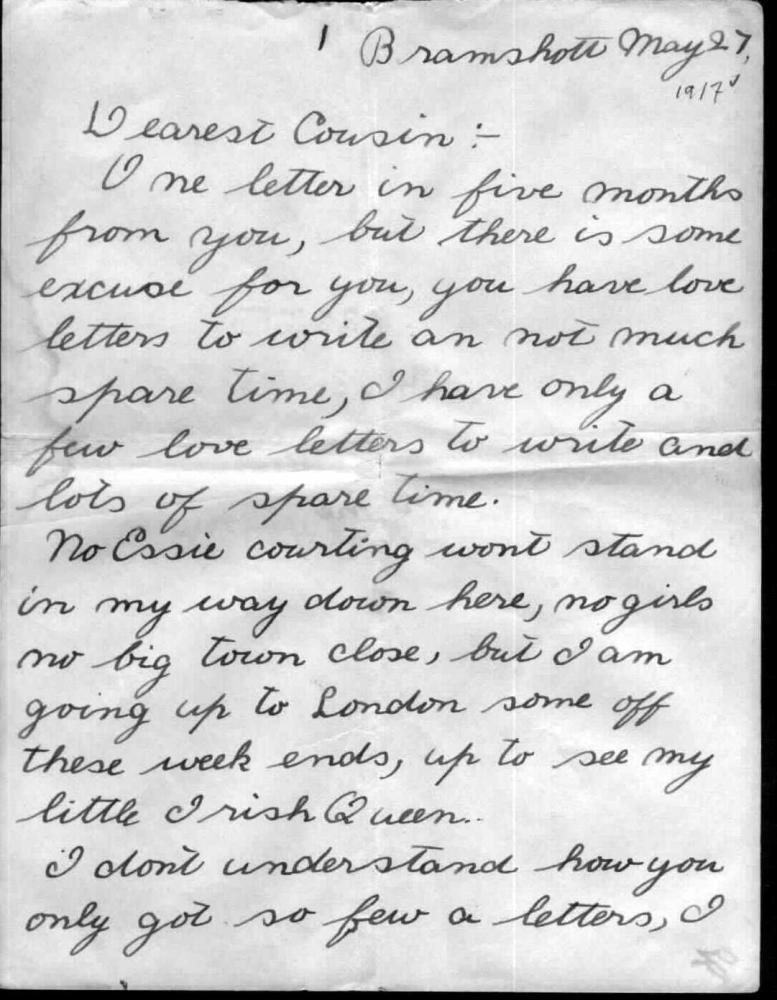 1 Bramshott May 27,
1917
Dearest Cousin :-
One letter in five months
from you, but there is some
excuse for you, you have love
letters to write an not much
spare time, I have only a
few love letters to write and
lots of spare time.
No Essie courting wont stand
in my way down here, no girls
no big town close, but I am
going up to London some off
these week ends, up to see my
little Irish Queen..
I dont understand how you
only got so few a letters, I